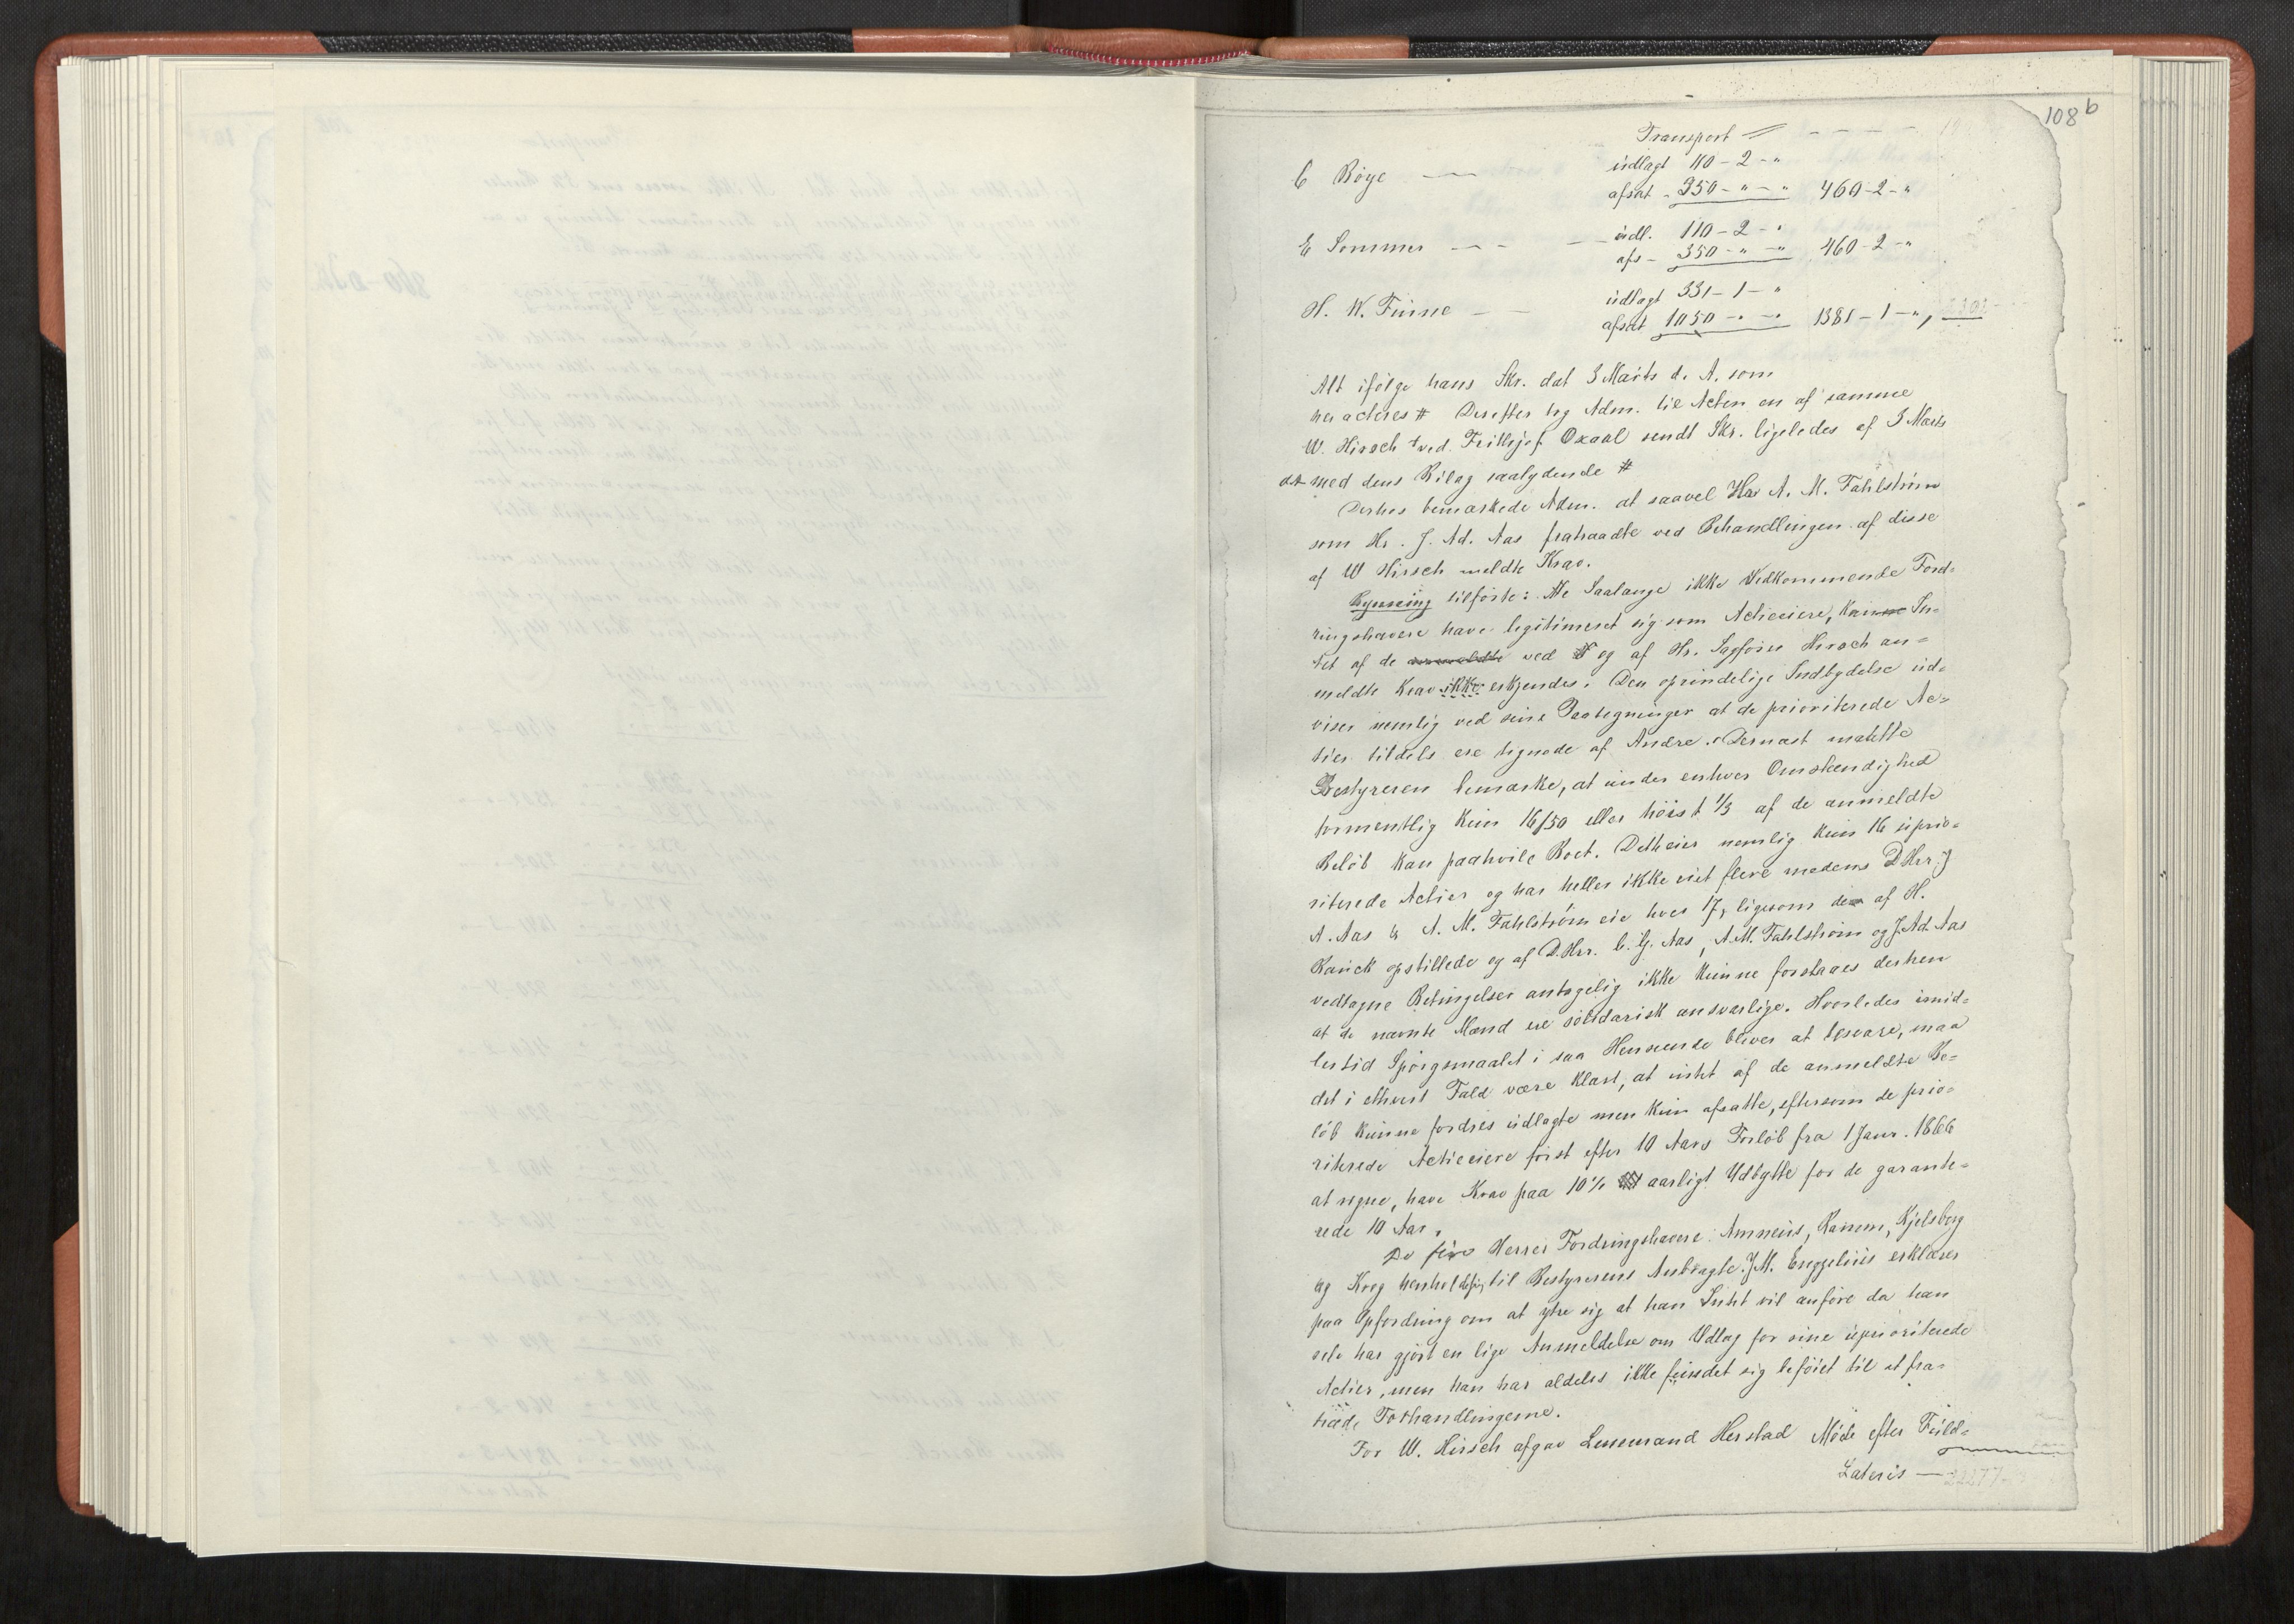 108 b
Transport
C Böye udlagt 110 - 2 - "
afsat - 350 - " - " 460 - 2 - "
E Sommer udl. 110 - 2 - "
afs - 350 - " - " 460 - 2 - "
H. K. Finne udlagt 331 - 1 - "
afsat 1050 - " - " 1381 - 1 - ",
Alt ifölge hans Skr. dat 3 Marts d. A. som
her acteres # Derefter tog Adm. til Acten en af samme
W. Hirsch + ved Frithjof Oxaal sendt Skr. ligeledes af 3 Marts
med dens Bilag saalydende #
Derhos bemærkede Adm. at saavel Hr A. M. Fahlström
som Hr. J. Ad. Aas fratraadte ved Behandlingen af disse
af W Hirsch meldte Krav.
tilförte: At Saalænge ikke Vedkommende Ford-
ringshavere have legitimeret sig som Actieeiere, kan In-
tet af de anmeldte ved og af Hr. Sagförer Hirsch an-
meldte Krav ikke erkjendes. Den oprindelige Indbydelse ud-
viser nemlig ved sine Paategninger at de prioriterede Ac-
tier tildels ere tegnede af Andre. Dernæst maatte
Bestyreren bemærke, at under enhver Omstændighed
formentlig kun 16/50 eller höist 1/3 af de anmeldte
Belöb kan paahvile Boet. Dette eier nemlig kun 16 uprio-
riterede Actier og har heller ikke eiet flere medens D Hrr J
A. Aas & A. M. Fahlström eie hver 17, ligesom de af H.
Ranck opstillede og af D. Hrr. C. G. Aas, A. M. Fahlström og J. Ad. Aas
vedtagne Betingelser antagelig ikke kunne forstaaes derhen
at de nævnte Mænd ere solidarisk ansvarlige. Hvorledes imid-
lertid Spörgsmaalet i saa Henseende bliver at besvare, maa
det i ethvert Fald være klart, at intet af de anmeldte Be-
löb kunne fordres udlagte men kun afsatte, eftersom de prio-
riterede Actieeiere först efter 10 Aars Forlöb fra 1 Janr. 1866
at regne, have Krav paa 10% aarligt Udbytte for de garante-
rede 10 Aar.
De fire Herrer Fordringshavere: Amneus, Ranem, Kjelsberg
og Krog henholdt sig til Bestyrerens Anbragte. J. M. Enggelius erklærer
paa Opfordring om at ytre sig at han Intet vil anföre da han
selv har gjort en lige Anmeldelse om Udlæg for sine uprioriterede
Actier, men han har aldeles ikke fundet sig beföiet til at fra-
træde Forhandlingerne.
For W. Hirsch afgav Lensmand Herstad Möde efter Fuld-
Lateris